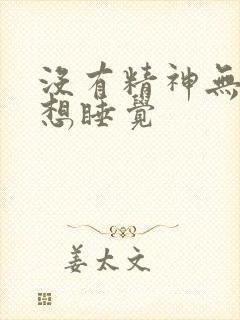 沒有精神無
想睡覺
姜太文